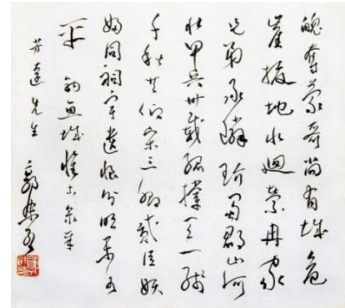 魄奪蒙哥尚有城危
崖拔地水迴縈冉家
兄弟承璘玠蜀郡山河
壯甲兵卅載孤撐天一線
千秋共仰宋三卿貳臣妖
婦同祠宇遺恨分明未可
平 釣魚城懷古
先生
郭沫若